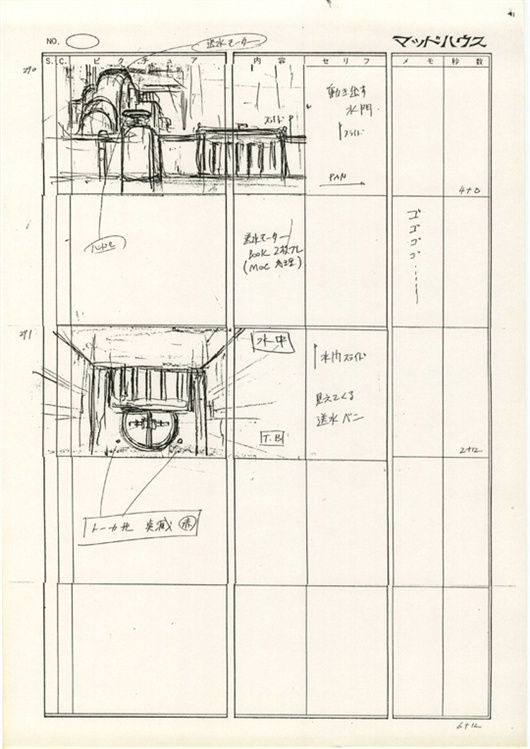 NO.
送水モーター
マッドハウス
S. C. ピクチュア 内容 セリフ メモ 秒数
270
動き出す
水門
スライド
スライド
PAN
4+0
ハンドル
送水モーター
BOOK 2枚ブレ
(MOC 処理)
ゴ
ゴ
ゴ
ゴ
271
水中
水門スライド
見えてくる
送水パン
T.B
2+12
トーカ光 点滅
6+12